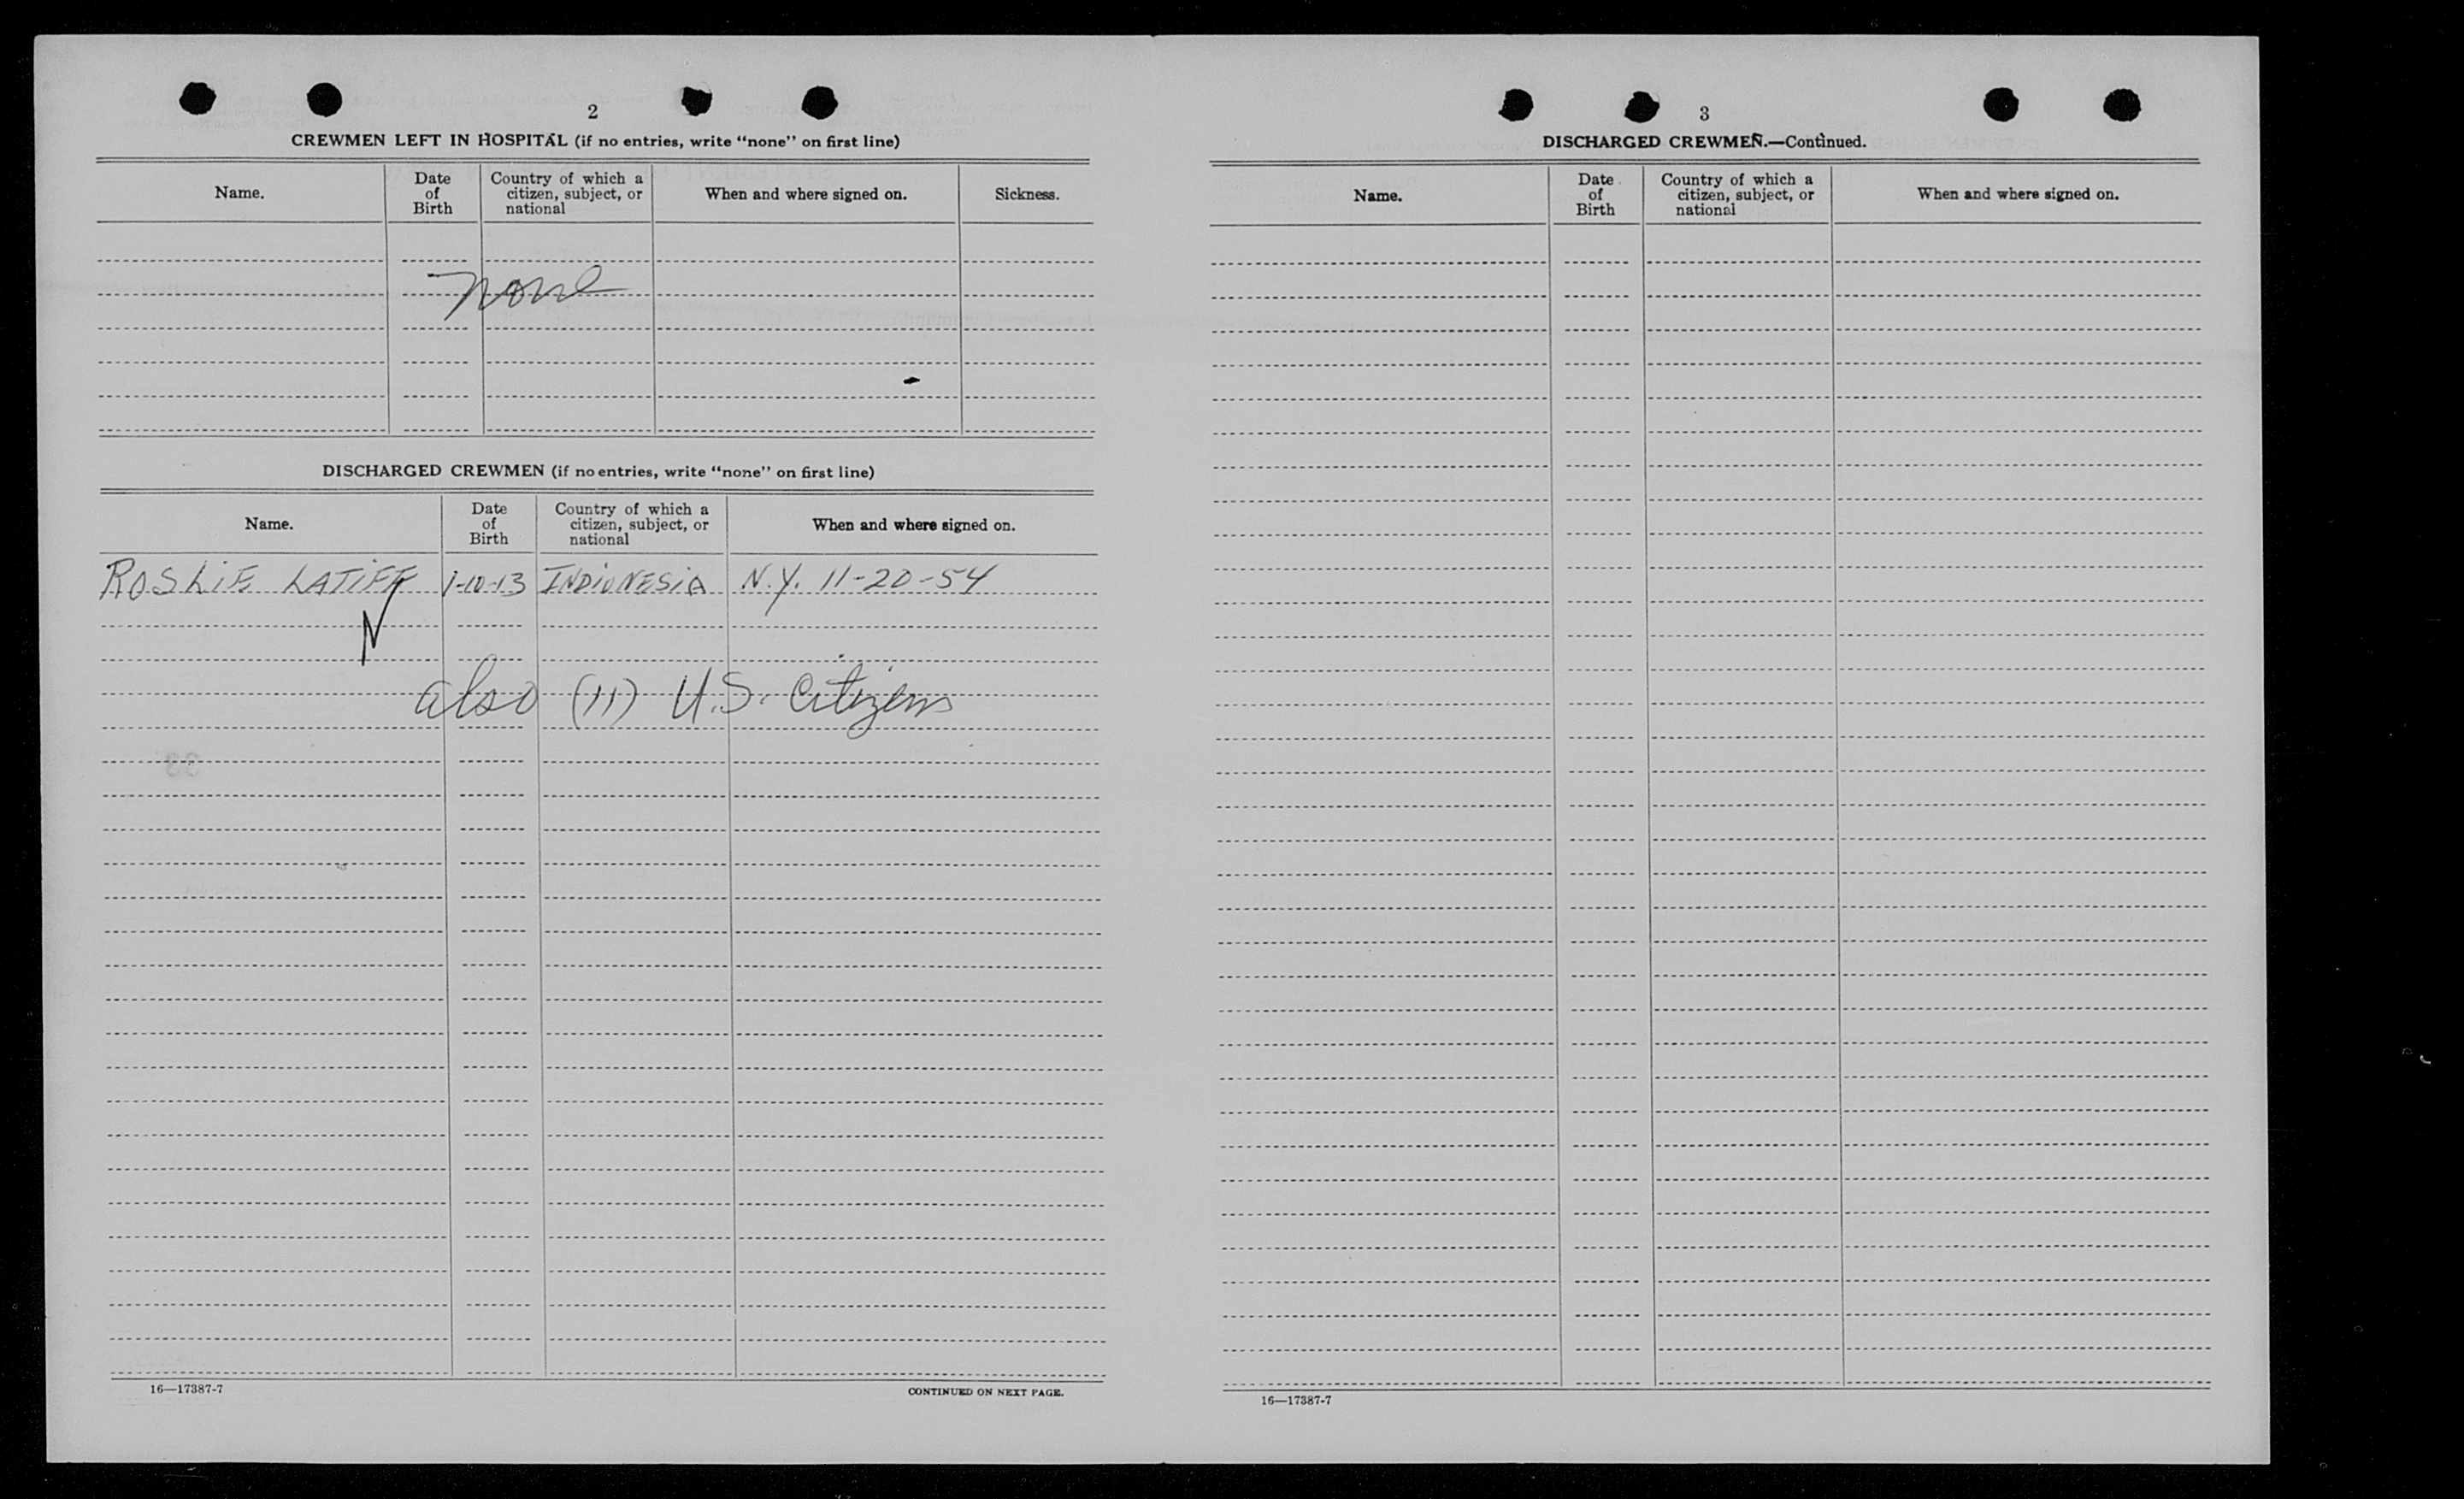 2
CREWMEN LEFT IN HOSPITAL (if no entries, write "none" on first line)
Name.
Date of Birth
Country of which a citizen, subject, or national
When and where signed on.
Sickness.
None
DISCHARGED CREWMEN (if no entries, write "none" on first line)
Name.
Date of Birth
Country of which a citizen, subject, or national
When and where signed on.
ROSLIE LATIFF 1-10-13 INDIONESIA N.Y. 11-20-54
N
also (11) U.S. Citizens
16—17387-7
CONTINUED ON NEXT PAGE.
3
DISCHARGED CREWMEN.—Continued.
Name.
Date of Birth
Country of which a citizen, subject, or national
When and where signed on.
16—17387-7